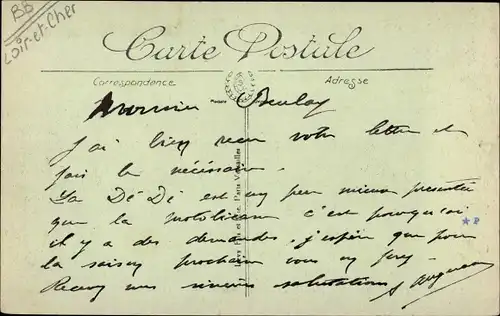 BB
Loir-et-Cher
Carte Postale
Correspondance
Adresse
Monsieur Boulay
J'ai bien reçu votre lettre et
fais le nécessaire.
La Dé Dé est un peu mieux presenté
que la c'est pourquoi
il y a des demandes. j'espère que pour
la saison prochaine vous en
Recevez mes sincères salutations